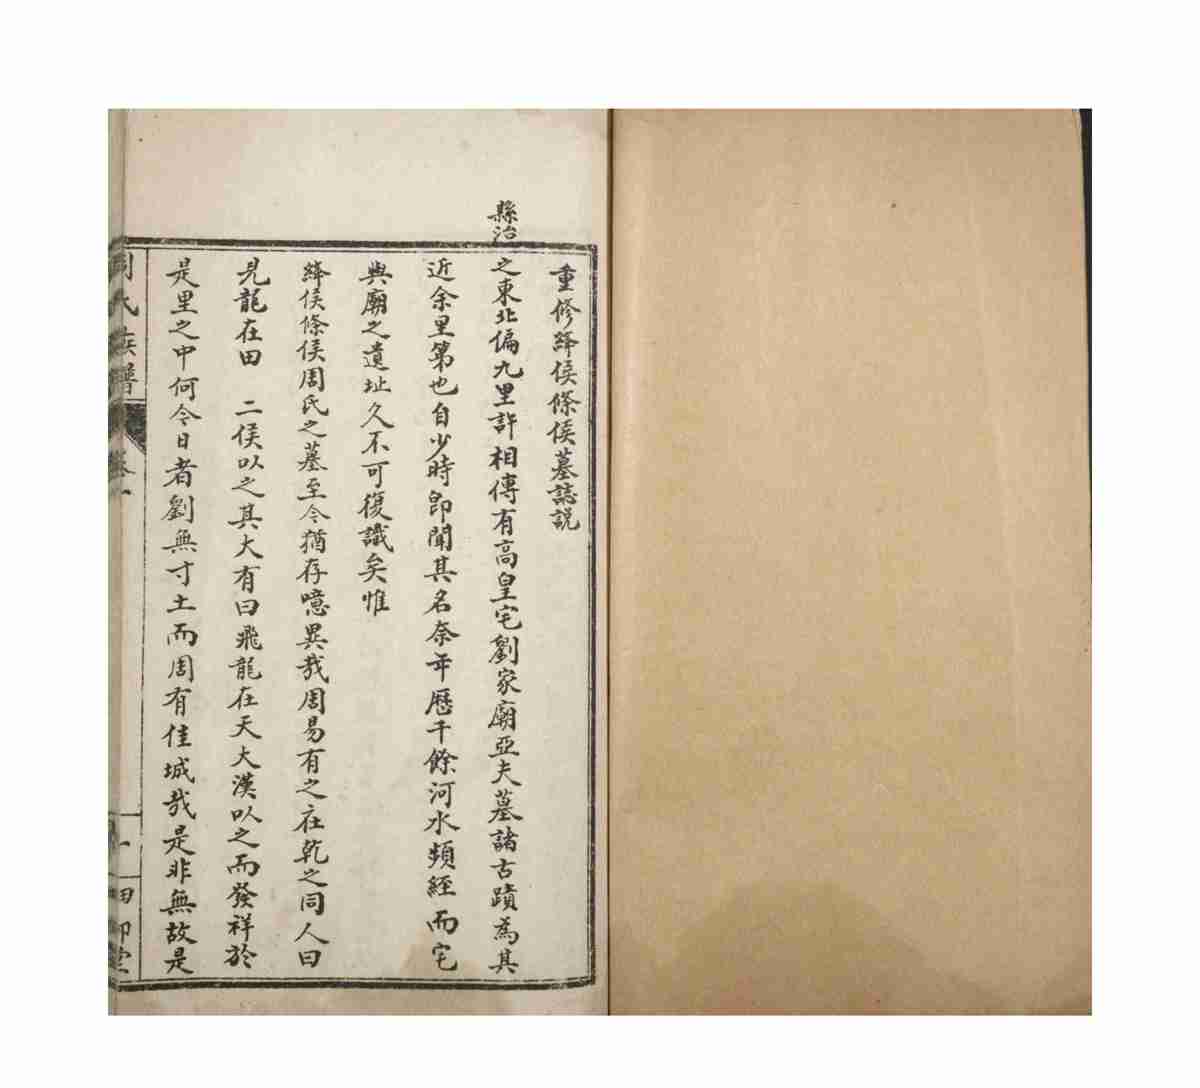 重修絳侯條侯墓誌說
縣治之東北偏九里許相傳有高皇宅劉家廟亞夫墓諸古蹟為其
近余里第也自少時即聞其名奈年歷千餘河水頻經而宅
與廟之遺址久不可復識矣惟
絳侯條侯周氏之墓至今猶存噫異哉周易有之在乾之同人曰
見龍在田 二侯以之其大有曰飛龍在天大漢以之而發祥於
是里之中何今日者劉無寸土而周有佳城哉是非無故是
周氏族譜 卷一